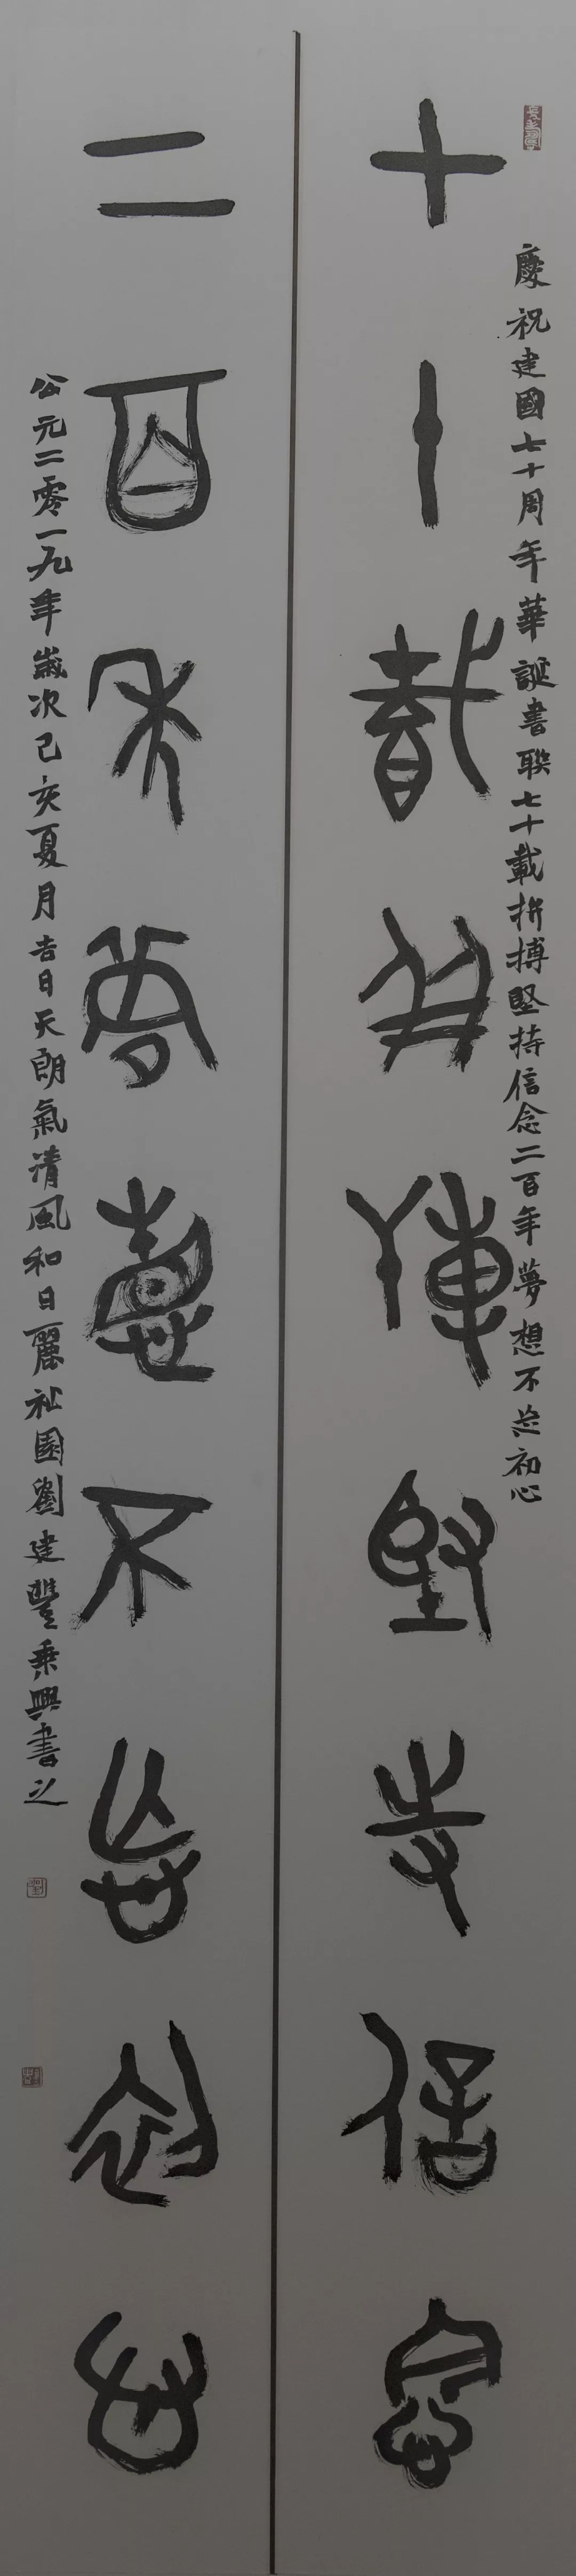 慶祝建國七十周年華誕書聯七十載拼搏堅持信念二百年夢想不忘初心
七十載拼搏堅持信念
二百年夢想不忘初心
公元二零一九年歲次己亥夏月吉日天朗氣清風和日麗祉園劉建豐乘興書之